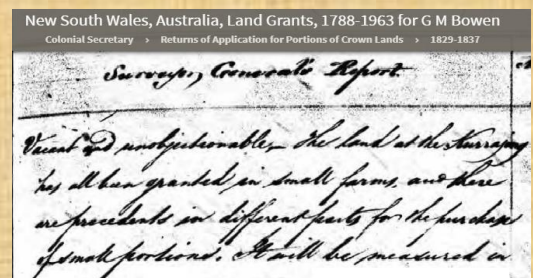 New South Wales, Australia, Land Grants, 1788-1963 for G M Bowen
Colonial Secretary > Returns of Application for Portions of Crown Lands > 1829-1837
Surveyor General's Report.
Vacant and unobjectionable, The land at the Kurrajong
has all been granted in small farms, and there
are precedents in different parts for the purchase
of small portions. It will be measured in